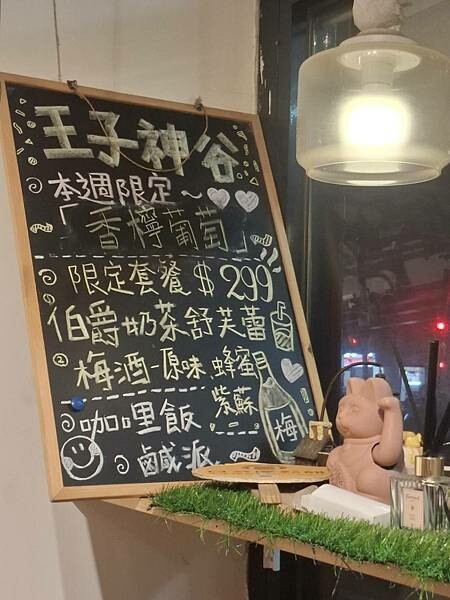 王子神谷
本週限定~
「香檸葡萄」
限定套餐 $299
伯爵奶茶舒芙蕾
② 梅酒-原味 蜂蜜
紫蘇
梅
咖哩飯
鹹派